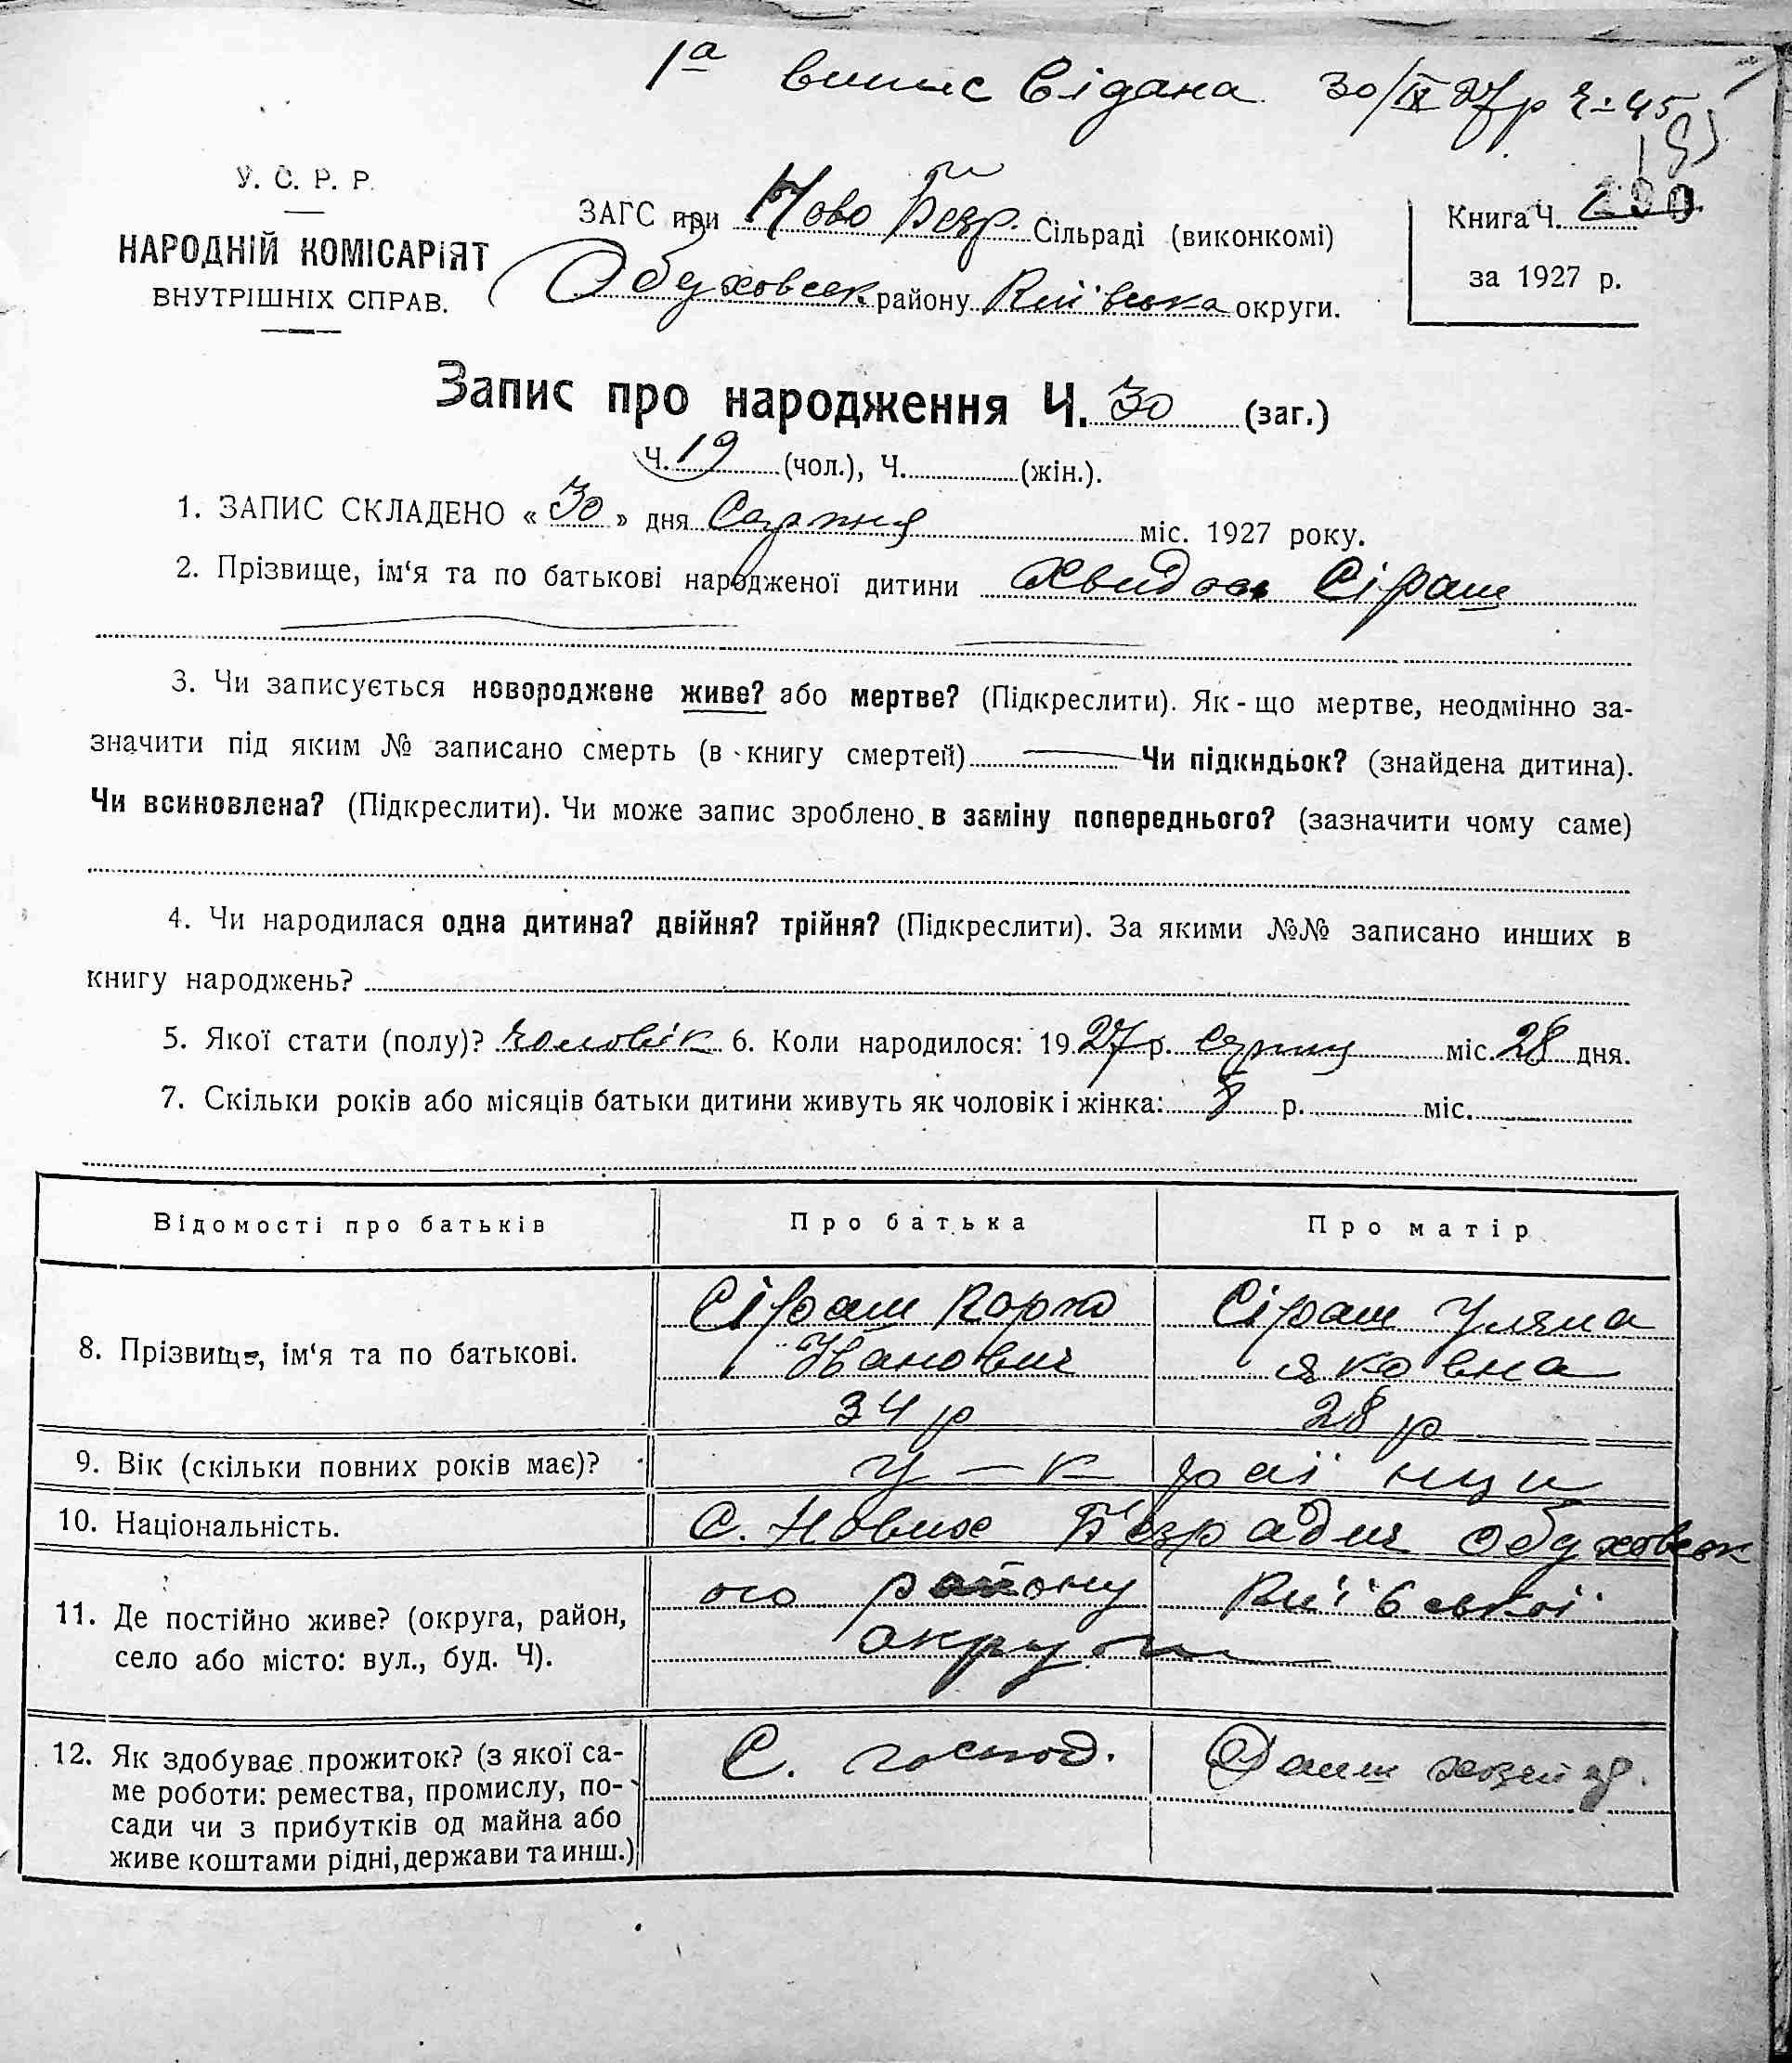 1а випис видана 30/IX 27р Ч=45
У. С. Р. Р.
НАРОДНІЙ КОМІСАРІЯТ
ВНУТРІШНІХ СПРАВ.
ЗАГС при Ново Безр. Сільраді (виконкомі)
Обуховськ. району Київська округи.
Книга Ч.
за 1927 р.
Запис про народження Ч. 30 (заг.)
Ч. 19 (чол.), Ч. (жін.).
1. ЗАПИС СКЛАДЕНО « 30 » дня Серпня міс. 1927 року.
2. Прізвище, ім‘я та по батькові народженої дитини Хвидось Сіраш
3. Чи записується новороджене живе? або мертве? (Підкреслити). Як-що мертве, неодмінно за-
значити під яким № записано смерть (в книгу смертей) Чи підкидьок? (знайдена дитина).
Чи всиновлена? (Підкреслити). Чи може запис зроблено в заміну попереднього? (зазначити чому саме)
4. Чи народилася одна дитина? двійня? трійня? (Підкреслити). За якими №№ записано инших в
книгу народжень?
5. Якої стати (полу)? чоловік 6. Коли народилося: 19 27 р. Серпня міс. 28 дня.
7. Скільки років або місяців батьки дитини живуть як чоловік і жінка: 8 р. міс.
Відомості про батьків Про батька Про матір
8. Прізвище, ім‘я та по батькові.
Сіраш Корно
Іванович
34 р
Сіраш Уляна
Яковна
28 р
9. Вік (скільки повних років має)?
У — к раінци
10. Національність.
С. Нових Безрадич Обуховськ
11. Де постійно живе? (округа, район,
село або місто: вул., буд. Ч).
ого району Київської
округи
12. Як здобуває прожиток? (з якої са-
ме роботи: ремества, промислу, по-
сади чи з прибутків од майна або
живе коштами рідні, держави та инш.)
С. господ.
Дамш хозяй